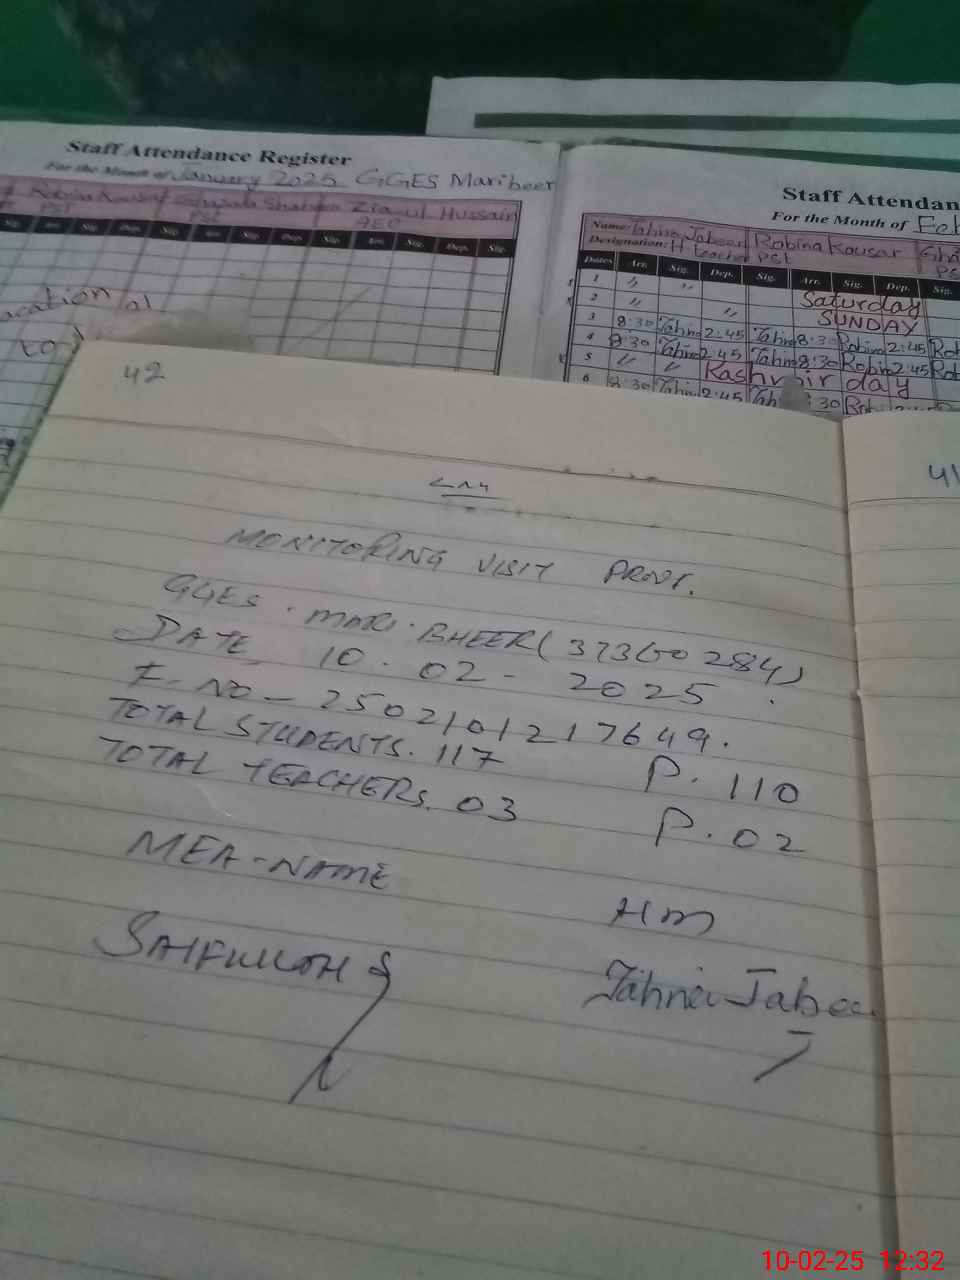 Staff Attendance Register
For the Month of January 2025 GGES Maribeer
Robina Kousar Shaheen Ziaul Hussain
PST PST AEO
Sig. Arr. Sig. Dep. Sig. Arr. Sig. Dep. Sig. Arr. Sig. Dep. Sig.
Staff Attendan
For the Month of Feb
Name: Tahira Jabeen Robina Kousar Gha
Designation: H teacher PST PS
Dates Arr. Sig. Dep. Sig. Arr. Sig. Dep. Sig.
1 " " Saturday
2 " " SUNDAY
3 8:30 2:45 8:30 Robina 2:45 Rob
4 8:30 2:45 8:30 Robina 2:45 Rob
5 " " Kashmir day
6 8:30 2:45 :30
42
41
MONITORING VISIT PROOF.
GGES. MARI. BHEER (37360284)
DATE 10.02-2025.
F. NO - 2502101217649.
TOTAL STUDENTS. 117 P. 110
TOTAL TEACHERS. 03 P. 02
MEA-NAME HM
SAIFULLAH
10-02-25 12:32